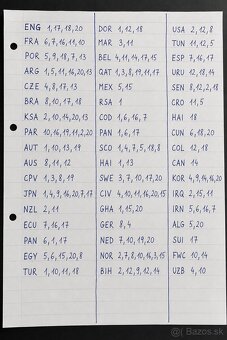 ENG 1,17,18,20
FRA 6,7,16,11,10
POR 5,9,18,7,13
ARG 1,5,11,16,20,13
CZE 4,8,17,13
BRA 8,10,17,18
KSA 2,10,14,20,13
PAR 10,16,19,11,2,20
AUT 1,10,13,19
AUS 8,11,12
CPV 1,3,8,19
JPN 1,4,9,16,20,7,17
NZL 2,11
ECU 7,16,17
PAN 6,1,17
EGY 5,6,15,20,8
TUR 1,10,11,18
DOR 1,12,18
MAR 3,11
BEL 4,11,14,17,15
QAT 1,3,8,19,11,17
MEX 5,15
RSA 1
COD 1,6,16,7
PAN 1,6,17
SCO 1,4,7,5,18,8
HAI 1,13
SWE 3,7,10,17,20
CIV 4,10,11,16,20,15
GHA 1,15,20
GER 8,4
NED 7,10,19,20
NOR 2,7,8,10,16,3,15
BIH 2,9,12,9,14
USA 2,8,11
TUN 11,12,5
ESP 7,16,17
URU 12,18,14
SEN 8,12,2,18
CRO 11,5
HAI 18
CUN 6,18,20
COL 12,18
CAN 14
KOR 4,9,14,16,20
IRQ 2,15,11
IRN 5,6,16,7
ALG 5,20
SUI 17
FWC 10,14
UZB 4,10
Bazos.sk